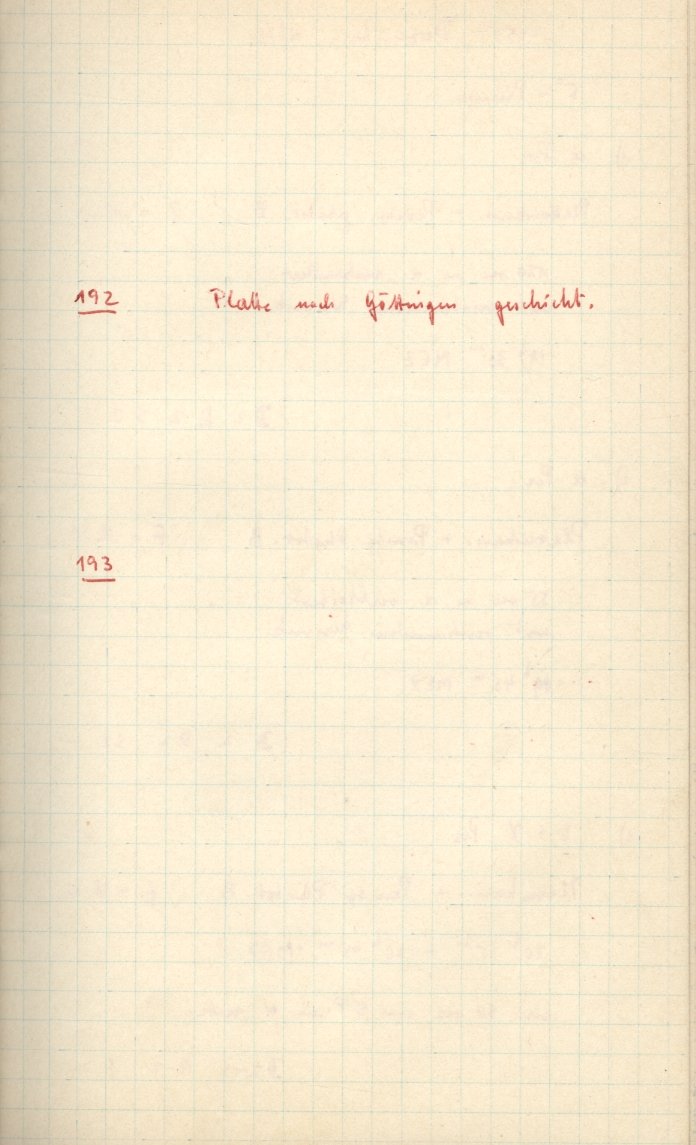 192 Platte nach Göttingen geschickt.
193